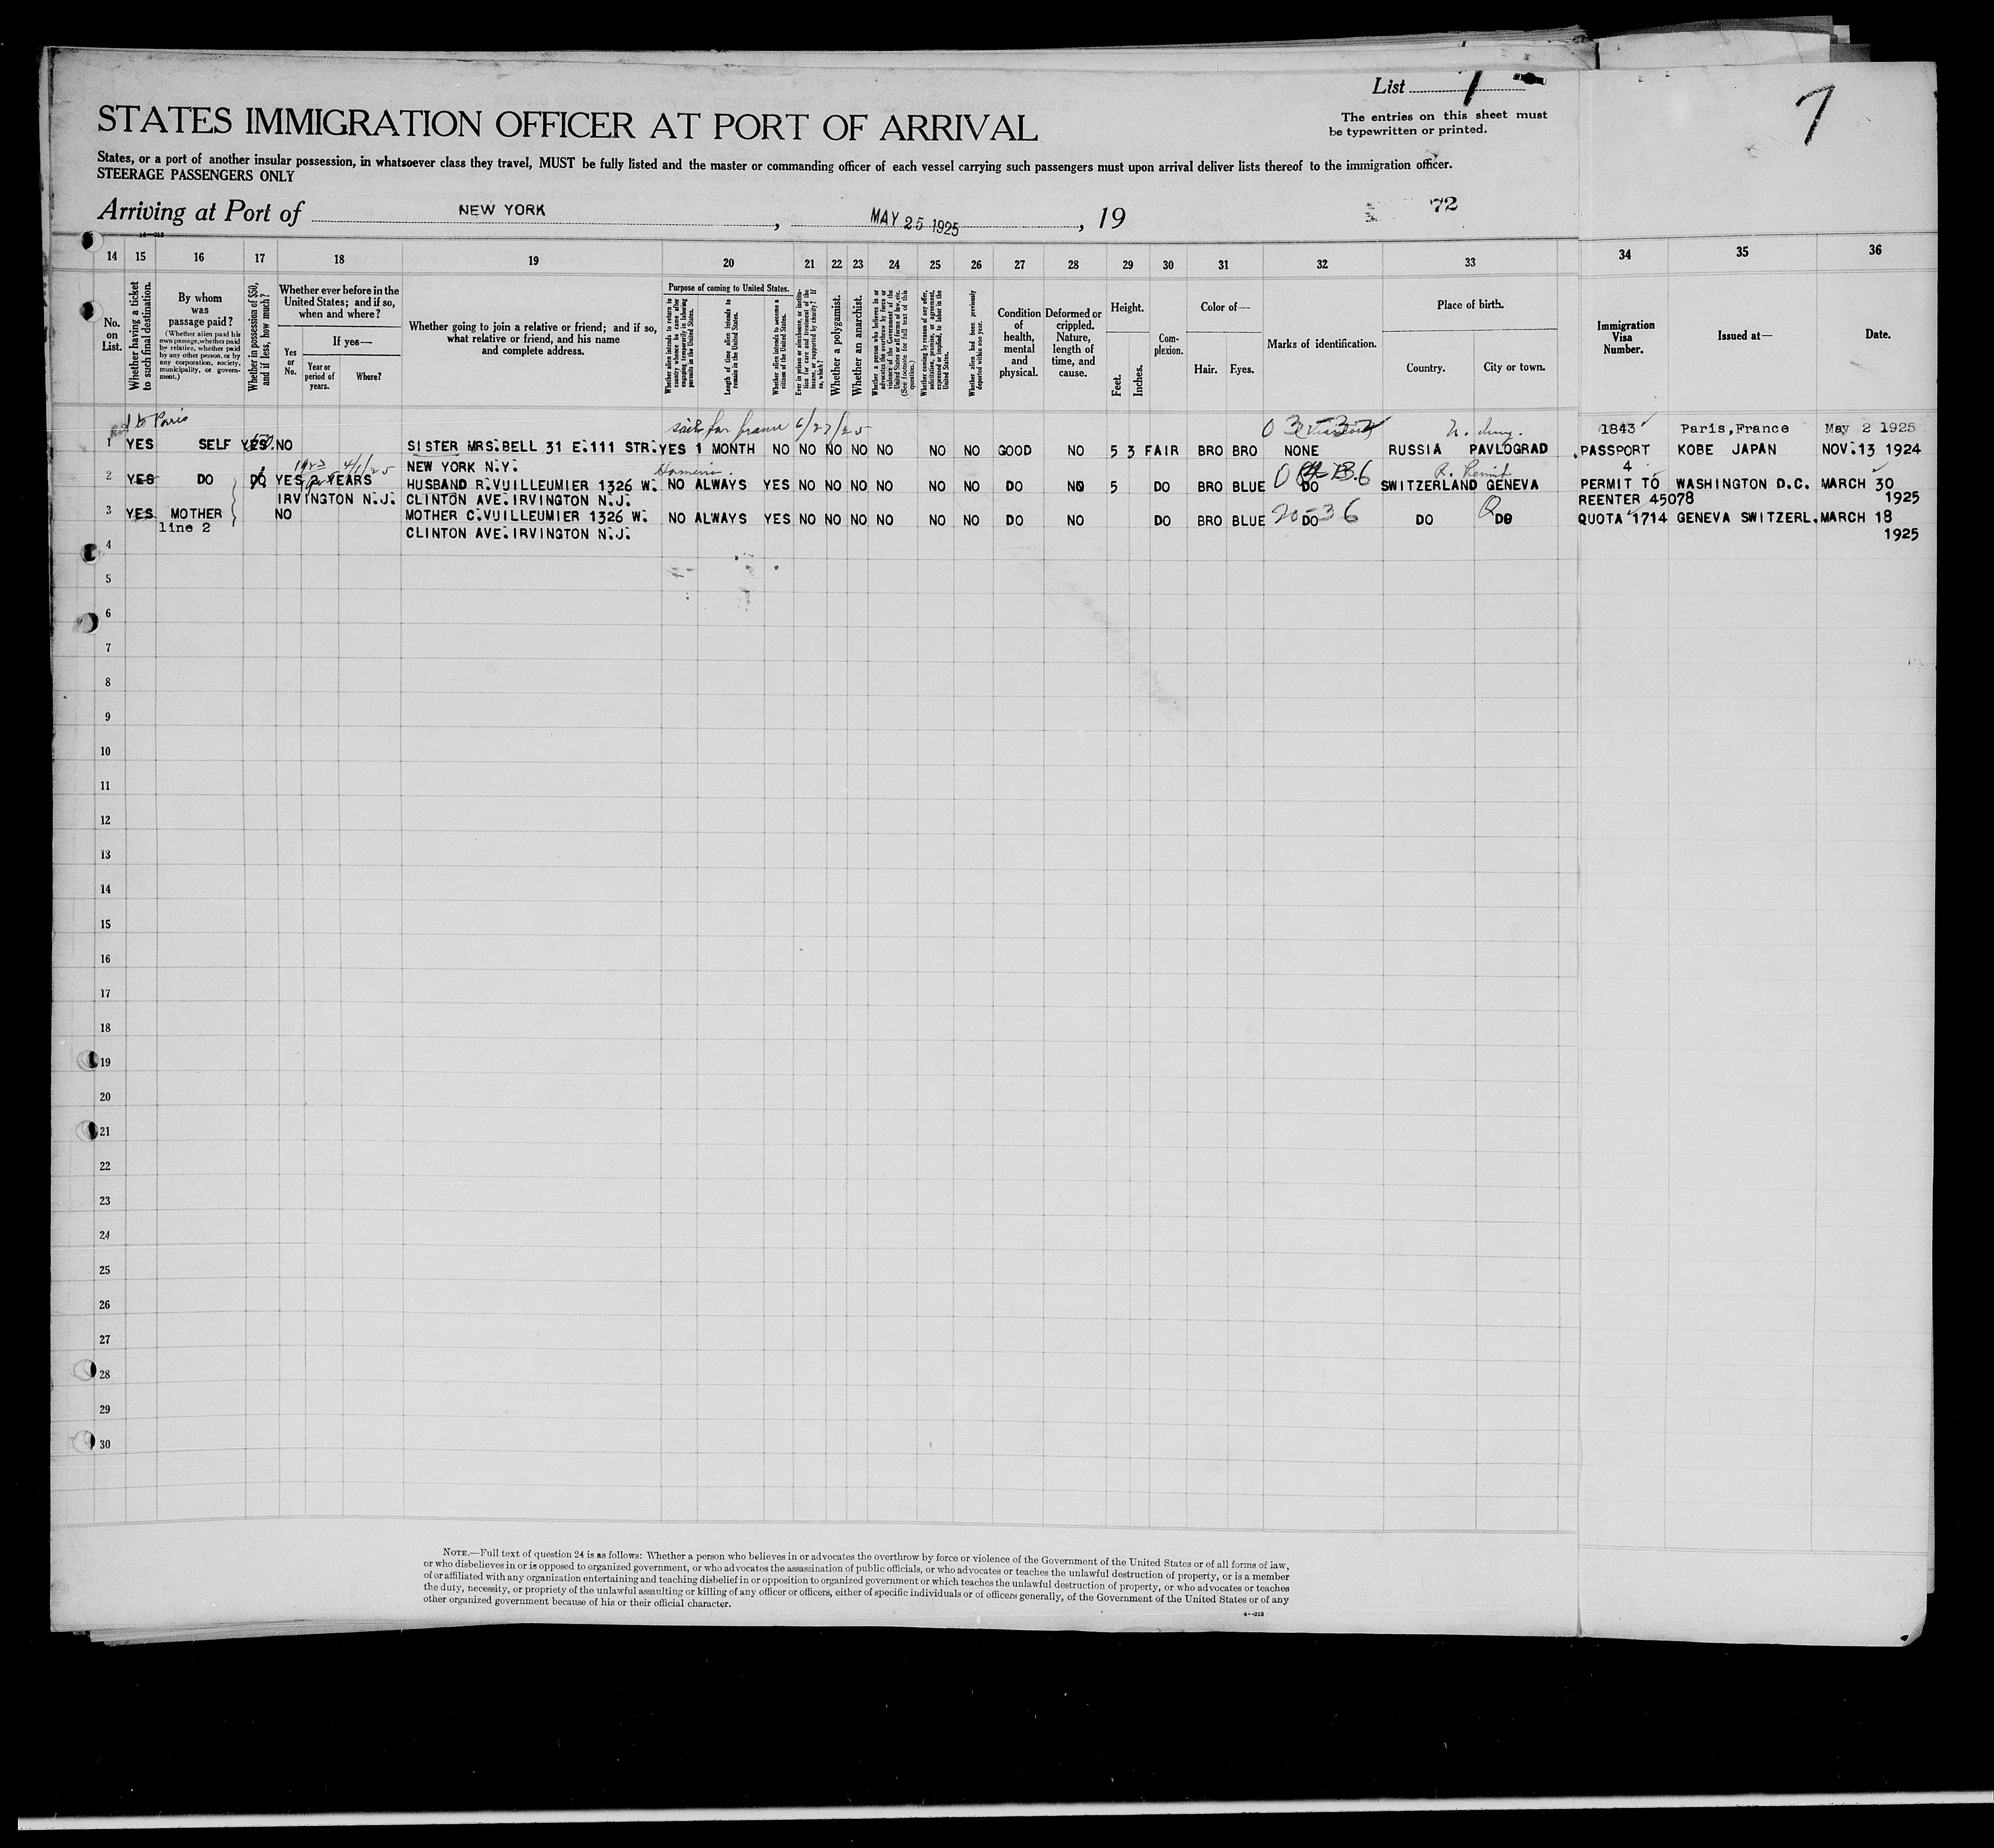 List 7
7
STATES IMMIGRATION OFFICER AT PORT OF ARRIVAL
The entries on this sheet must
be typewritten or printed.
States, or a port of another insular possession, in whatsoever class they travel, MUST be fully listed and the master or commanding officer of each vessel carrying such passengers must upon arrival deliver lists thereof to the immigration officer.
STEERAGE PASSENGERS ONLY
Arriving at Port of NEW YORK, MAY 25 1925, 19
72
14 15 16 17 18 19 20 21 22 23 24 25 26 27 28 29 30 31 32 33 34 35 36
No. on List.
Whether having a ticket to such final destination.
By whom was passage paid?
(Whether alien paid his own passage, whether paid by relative, whether paid by any other person, or by any corporation, society, municipality, or government.)
Whether in possession of $50, and if less, how much?
Whether ever before in the United States; and if so, when and where?
Yes or No.
If yes—
Year or period of years.
Where?
Whether going to join a relative or friend; and if so, what relative or friend, and his name and complete address.
Purpose of coming to United States.
Whether alien intends to return to country whence he came after engaging temporarily in laboring pursuits in the United States.
Length of time alien intends to remain in the United States.
Whether alien intends to become a citizen of the United States.
Ever in prison or almshouse, or institution for care and treatment of the insane, or supported by charity? If so, which?
Whether a polygamist.
Whether an anarchist.
Whether a person who believes in or advocates the overthrow by force or violence of the Government of the United States or all forms of law, etc. (See footnote for full text of this question.)
Whether coming by reason of any offer, solicitation, promise, or agreement, expressed or implied, to labor in the United States.
Whether alien had been previously deported within one year.
Condition of health, mental and physical.
Deformed or crippled. Nature, length of time, and cause.
Height.
Feet. Inches.
Complexion.
Color of—
Hair. Eyes.
Marks of identification.
Place of birth.
Country. City or town.
Immigration Visa Number.
Issued at—
Date.
Paris
sails for france 6/27/25
1843 Paris,France May 2 1925
1 YES SELF YES NO SISTER MRS.BELL 31 E.111 STR. YES 1 MONTH NO NO NO NO NO NO NO GOOD NO 5 3 FAIR BRO BRO NONE RUSSIA PAVLOGRAD PASSPORT KOBE JAPAN NOV.13 1924
NEW YORK N.Y.
4
2 YES DO DO YES 2 YEARS HUSBAND R.VUILLEUMIER 1326 W. NO ALWAYS YES NO NO NO NO NO NO DO NO 5 DO BRO BLUE DO SWITZERLAND GENEVA PERMIT TO WASHINGTON D.C. MARCH 30
IRVINGTON N.J. CLINTON AVE.IRVINGTON N.J. REENTER 45078 1925
3 YES MOTHER NO MOTHER C.VUILLEUMIER 1326 W. NO ALWAYS YES NO NO NO NO NO NO DO NO DO BRO BLUE DO DO DO QUOTA 1714 GENEVA SWITZERL. MARCH 18
line 2 CLINTON AVE.IRVINGTON N.J. 1925
4
5
6
7
8
9
10
11
12
13
14
15
16
17
18
19
20
21
22
23
24
25
26
27
28
29
30
NOTE.—Full text of question 24 is as follows: Whether a person who believes in or advocates the overthrow by force or violence of the Government of the United States or of all forms of law,
or who disbelieves in or is opposed to organized government, or who advocates the assassination of public officials, or who advocates or teaches the unlawful destruction of property, or is a member
of or affiliated with any organization entertaining and teaching disbelief in or opposition to organized government or which teaches the unlawful destruction of property, or who advocates or teaches
the duty, necessity, or propriety of the unlawful assaulting or killing of any officer or officers, either of specific individuals or of officers generally, of the Government of the United States or of any
other organized government because of his or their official character.